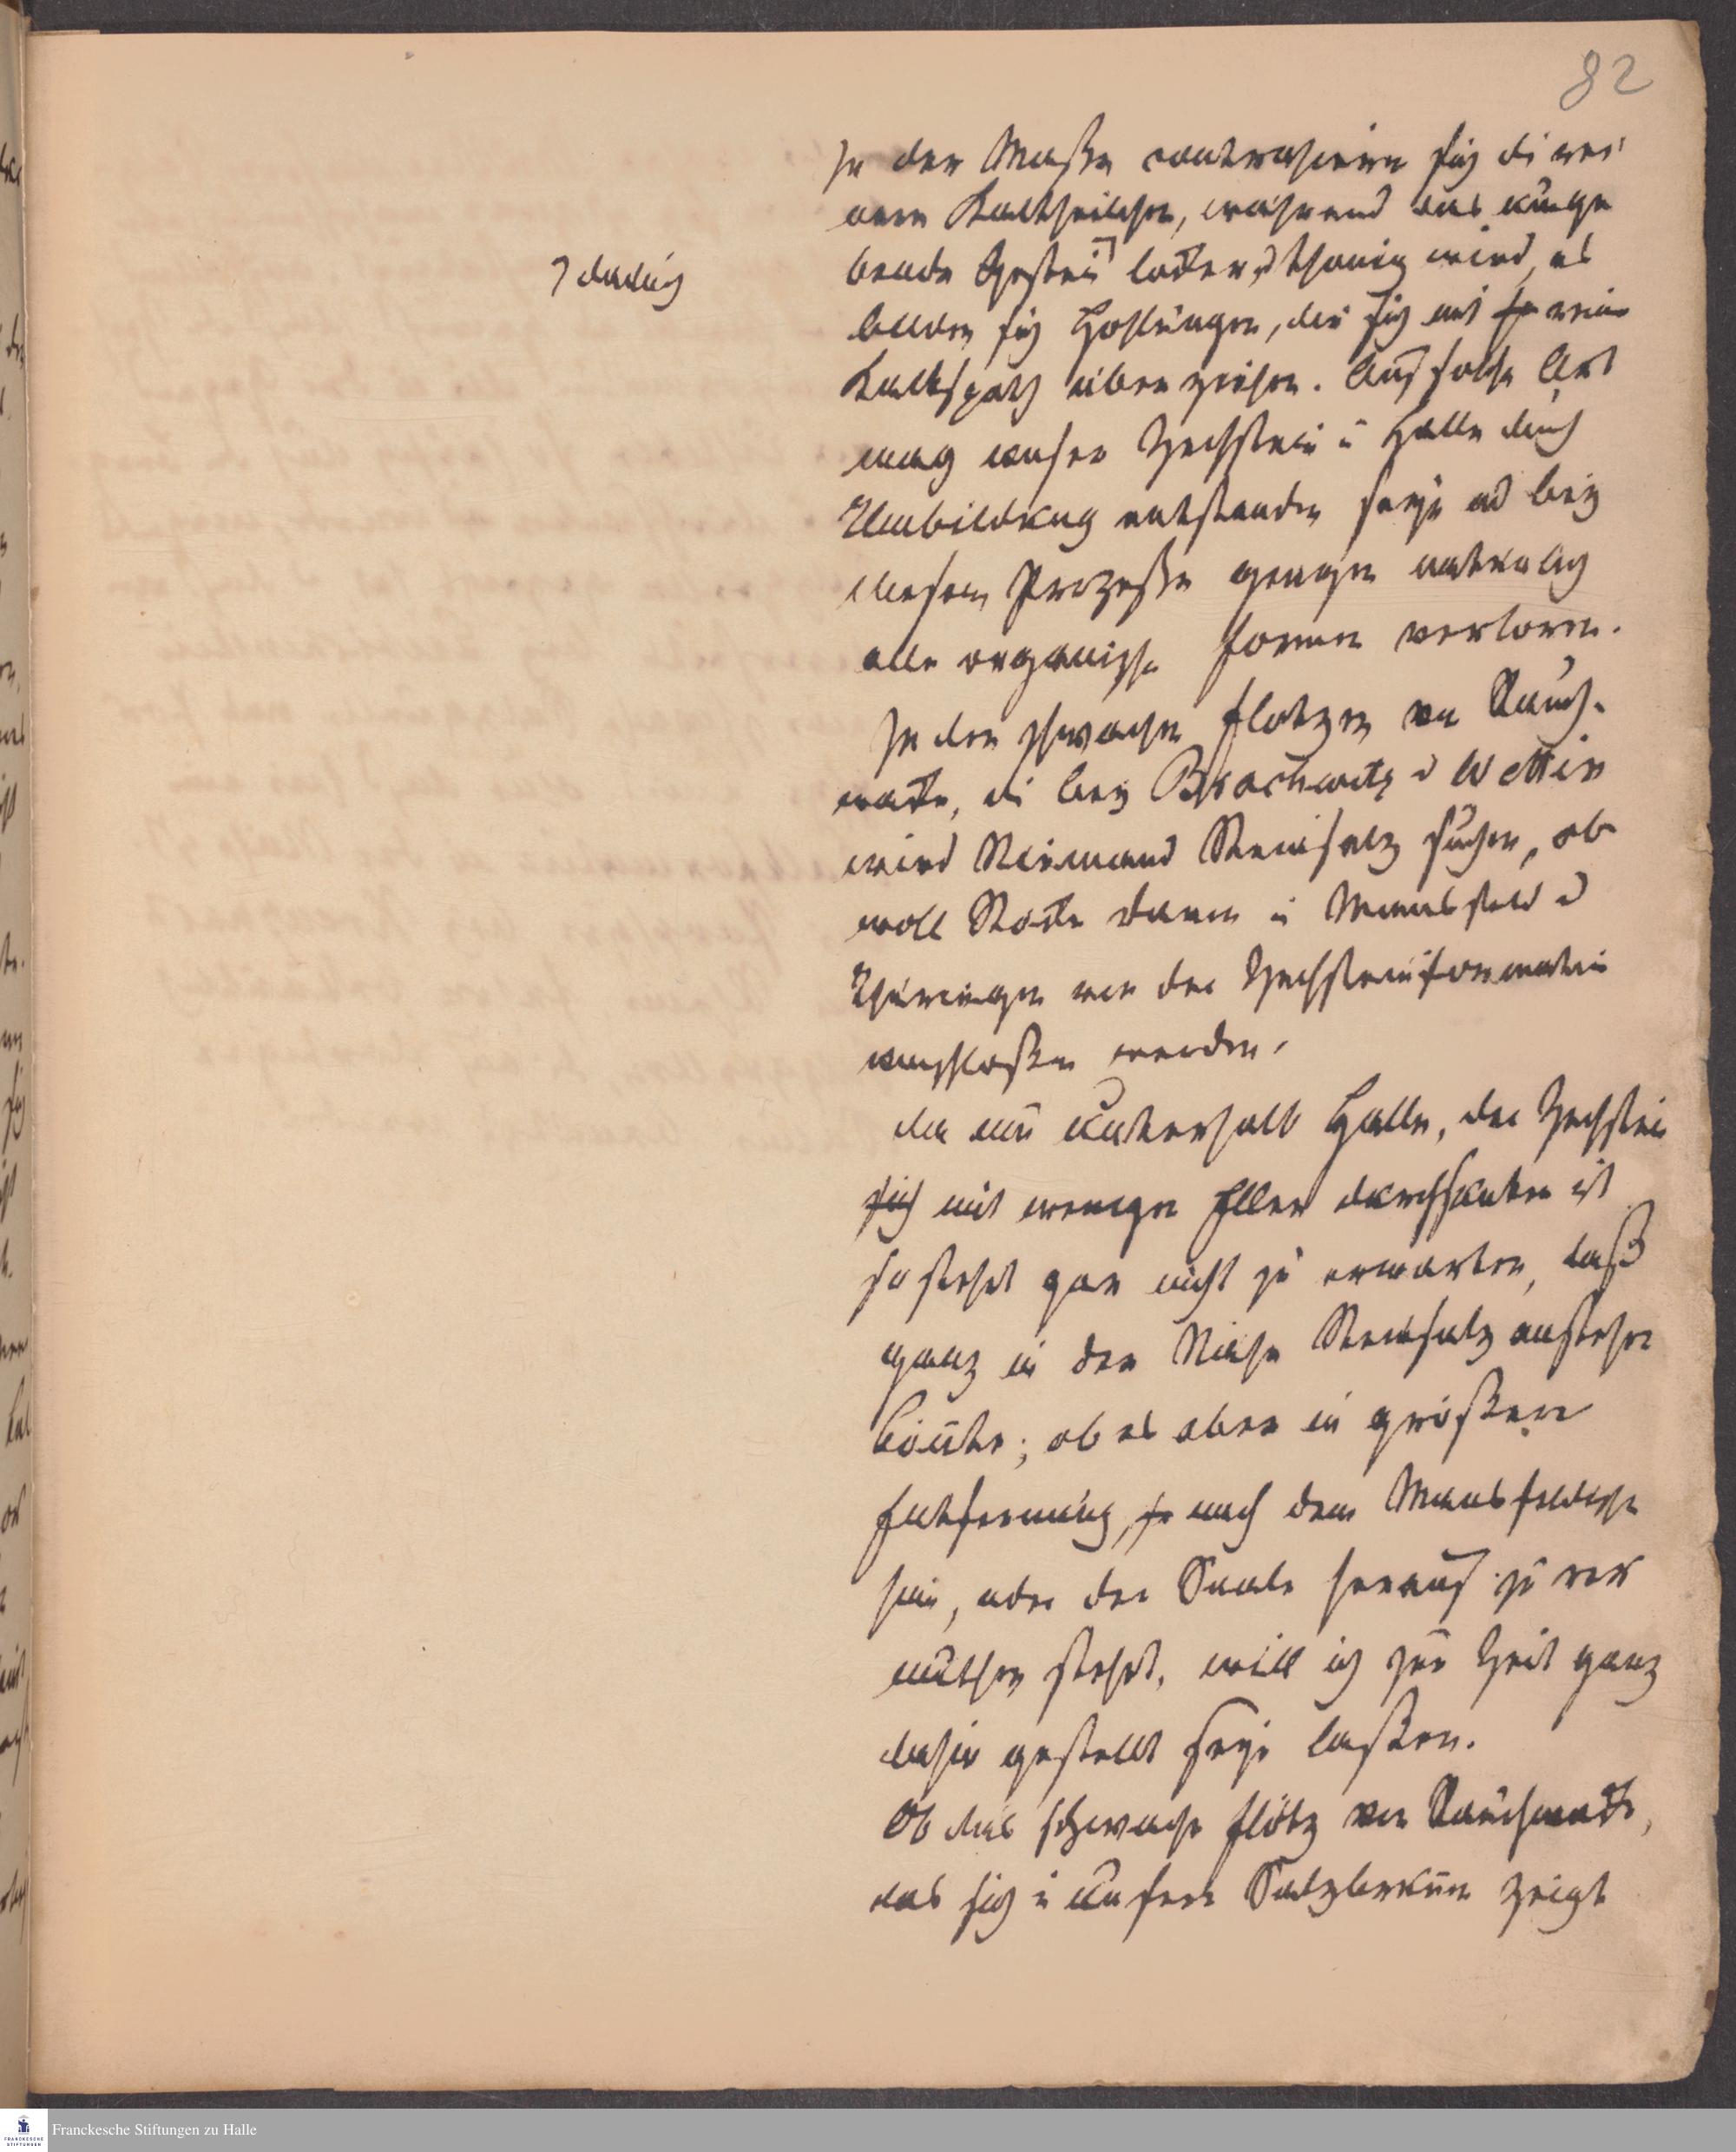 82
In der Maße contrahiren sich die rei-
nern Kalktheilchen, während das umge
bende Gestein ⌉ locker u thonig wird, es
⌉ dadurch
bilden sich Höhlungen, die sich mit rein
Kalkspath überziehen. Auf solche Art
mag unser Zechstein in Halle durch
Umbildung entstanden seyn und bey
diesem Prozeße gingen
alle organische Formen verloren.
In den schwachen Flötzen von Rauch-
wacke, die bey Brachwitz u Wettin
wird Niemand Steinsalz suchen, ob-
woll Stöcke davon in Mansfeld u
Thüringen von der Zechsteinformation
umschloßen werden.
Da nun unterhalb Halle, der Zechstein
mit wenigen Ellen durchsunken ist
so stehet gar nicht zu erwarten, daß
ganz in der Nähe Steinsalz anstehen
könnte; ob es aber in größerer
Entfernung, nach dem Mansfeldischen
hin, oder der Saale herauf zu ver
muthen stehet, will ich zur Zeit ganz
dahin gestellt seyn laßen.
Ob das schwache Flötz von Rauchwacke,
das sich in unsern Salzbrunnen zeigt
Franckesche Stiftungen zu Halle